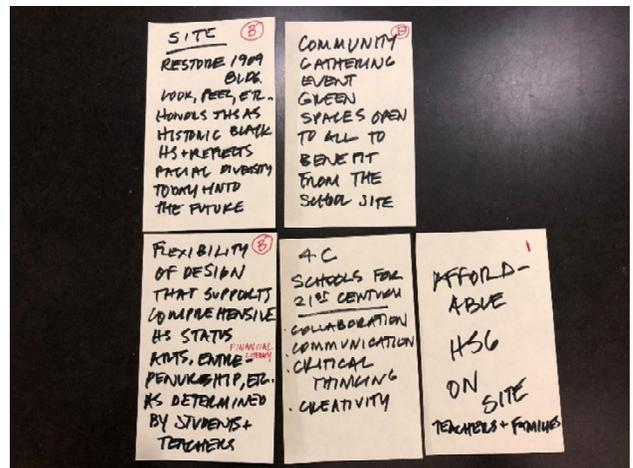 SITE
B
RESTORE 1909
BLDG.
LOOK, FEEL, ETC..
HONORS JHS AS
HISTORIC BLACK
HS + REFLECTS
RACIAL DIVERSITY
TODAY + INTO
THE FUTURE
COMMUNITY
GATHERING
EVENT
GREEN
SPACES OPEN
TO ALL TO
BENEFIT
FROM THE
SCHOOL SITE
FLEXIBILITY
B
OF DESIGN
THAT SUPPORTS
COMPREHENSIVE
HS STATUS
FINANCIAL
LITERACY
ARTS, ENTRE-
PENURSHIP, ETC.
AS DETERMINED
BY STUDENTS +
TEACHERS
4C
SCHOOLS FOR
21ST CENTURY
· COLLABORATION
· COMMUNICATION
· CRITICAL
THINKING
· CREATIVITY
AFFORD-
ABLE
HSG
ON
SITE
TEACHERS + FAMILIES